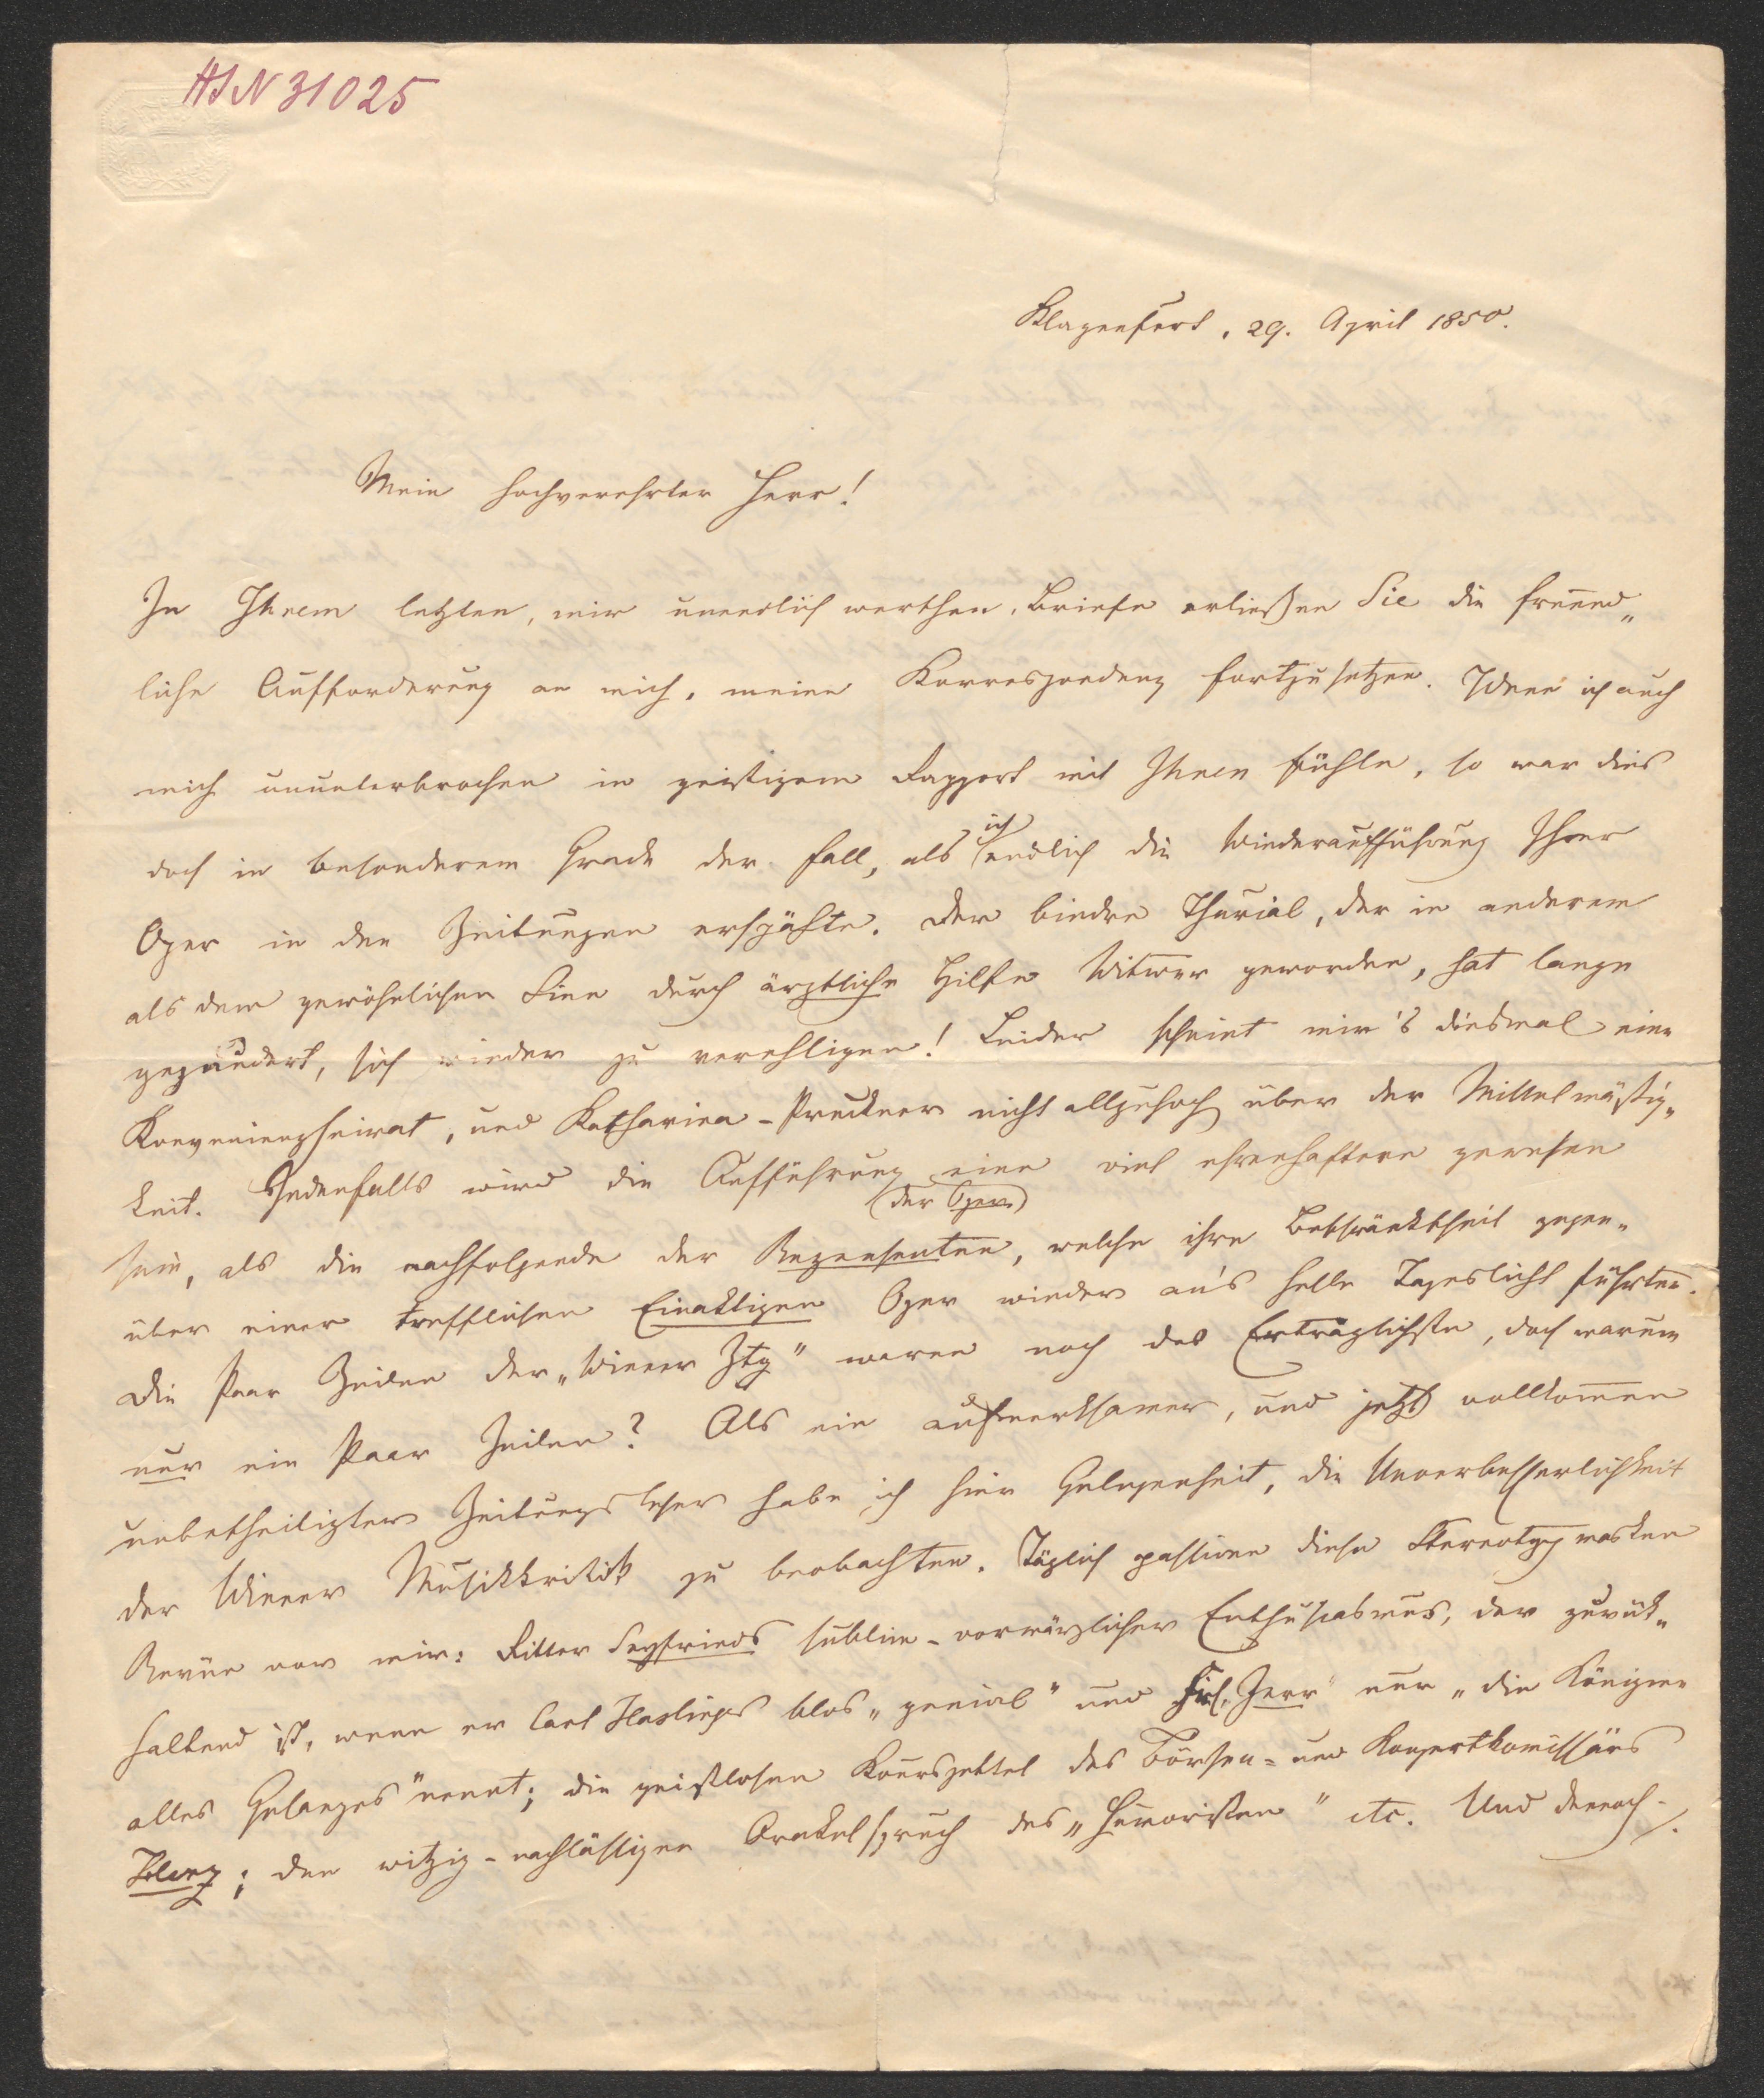 HIN 31025
Klagenfurt, 29. April 1850.
Mein hochverehrter Herr!
In Ihrem letzten, mir unendlich werthen, Briefe erließen Sie die freund„
liche Aufforderung an mich, meine Korrespondenz fortzusetzen. Wenn ich auch
mich ununterbrochen in geistigem Rapport mit Ihnen fühle, so war dies
doch in besonderem Grade der Fall, als ich endlich die Wiederaufführung Ihrer
Oper in den Zeitungen erspähte. Der biedre Thurial, der in anderem
als dem gewöhnlichen Sinn durch ärztliche Hilfe Witwer geworden, hat lange
gezaudert, sich wieder zu verehligen! Leider scheint mir's diesmal eine
Konvenienzheirat, und Katharina-Pruckner nicht allzuhoch über der Mittelmäßig„
keit. Jedenfalls wird die Aufführung (der Oper) eine viel ehrenhaftere gewesen
sein, als die nachfolgende der Rezensenten, welche ihre Beschränktheit gegen„
über einer trefflichen Einaktigen Oper wieder an's helle Tageslicht führten.
Die Paar Zeilen der „Wiener Ztg" waren noch das Erträglichste, doch warum
nur ein Paar Zeilen? Als ein aufmerksamer, und jetzt vollkommen
unbetheiligter Zeitungsleser habe ich hier Gelegenheit, die Unverbesserlichkeit
der Wiener Musikkritik zu beobachten. Täglich passiren diese Stereotypmasken
Revüe vor mir: Ritter Seyfrieds sublim-vormärzlicher Enthusiasmus, der zurück„
haltend ist, wenn er Carl Haslinger blos „genial" und Frl. Zerr nur „die Königin
alles Gesanges" nennt; die geistlosen Kourszettel des Börsen- und Konzertkomissärs
; den witzig-nachlässigen Orakelspruch des „Humoristen" etc. Und dennoch-